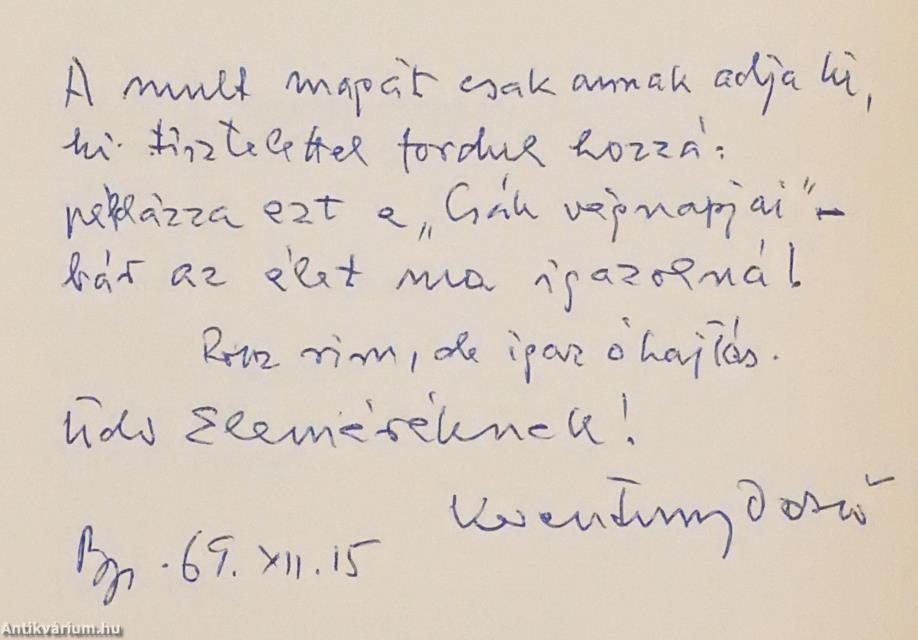 A mult magát csak annak adja ki,
ki tisztelettel fordul hozzá:
példázza ezt a „Csák végnapjai"-
bár az élet ma igazolná!
Rossz rim, de igaz óhajtás.
Üdv Elemeréknek!
Keresztury Dezső
Bp. 69. XII. 15
Antikvárium.hu